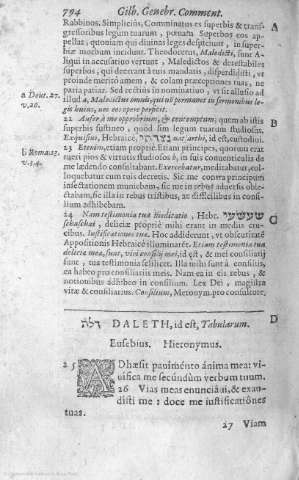 794 Gilb. Genebr. Comment.
Rabbinos. Simplicius, Comminatus es superbis & transgressoribus
legum tuarum, porrum Superbos eos appellat,
quoniam qui diuinas leges despiciunt, in superbiæ
morbum incidunt. Theodoretus, Maledicti, si
aliqui in accusatiuo vertunt, Maledictos & detestabiles
superbos, qui deerrant à tuis mandatis, disperdidisti, vt
proinde meritò amem, & colam præceptiones tuas, ne
paria patiar. Sed rectius in nominatiuo, vt sit allusio ad
illud a, Maledictus omnis, qui nō permanet in sermonibus legis
huius, nec eos opere perficit.
22 Aufer à me opprobrium, & contemptum; quem ab istis
superbis sustineo, quòd sim legum tuarum studiosus.
Exquisiui, Hebraicè, נצרתי id est, custodiui.
23 Etenim, etiam proprie. Etiam principes, quorum erat
tueri pios & virtutis studiosos b, in suis conuenticulis de
me lædendo consultabant. Exercebatur, meditabatur, colloquebatur
cum tuis decretis. Sic me contra principum
insectationem muniebam, sic me in rebus aduersis oblectabam,
sic illa in rebus tristibus, ac difficilibus in consilium
adhibebam.
24 Nam testimonia tua meditatio, Hebr. שעשעי
deliciæ propriè mihi erant in medus cruciatibus.
Iustificationes tuæ. Hoc addiderunt, vt obscuritatē
Appositionis Hebraicè illuminarēt. Etiam testimonia tua
deliciæ meæ, sunt, viri consilij mei, id est, & mei consiliarij
sunt, tua testimonia scilicet. Illa mihi sunt à consiliis,
ea habeo pro consiliariis meis. Nam ea in eis rebus, &
notionibus adhibeo in consilium. Lex Dei, magistra
vitæ & consiliarius. Consilium, Hieronym. pro consultore,
A
B
C
D
a Deut. 27.
v. 26.
b Roma. 13.
v. 3. 4.
דלת DALETH, id est, Tabularum.
Eusebius. Hieronymus.
25 ADhæsit pauimento ánima mea: viuifica
me secúndùm verbum tuum.
26 Vias meas enunciáui, & exaudísti
me: doce me iustificatiónes
tuas.
27 Viam